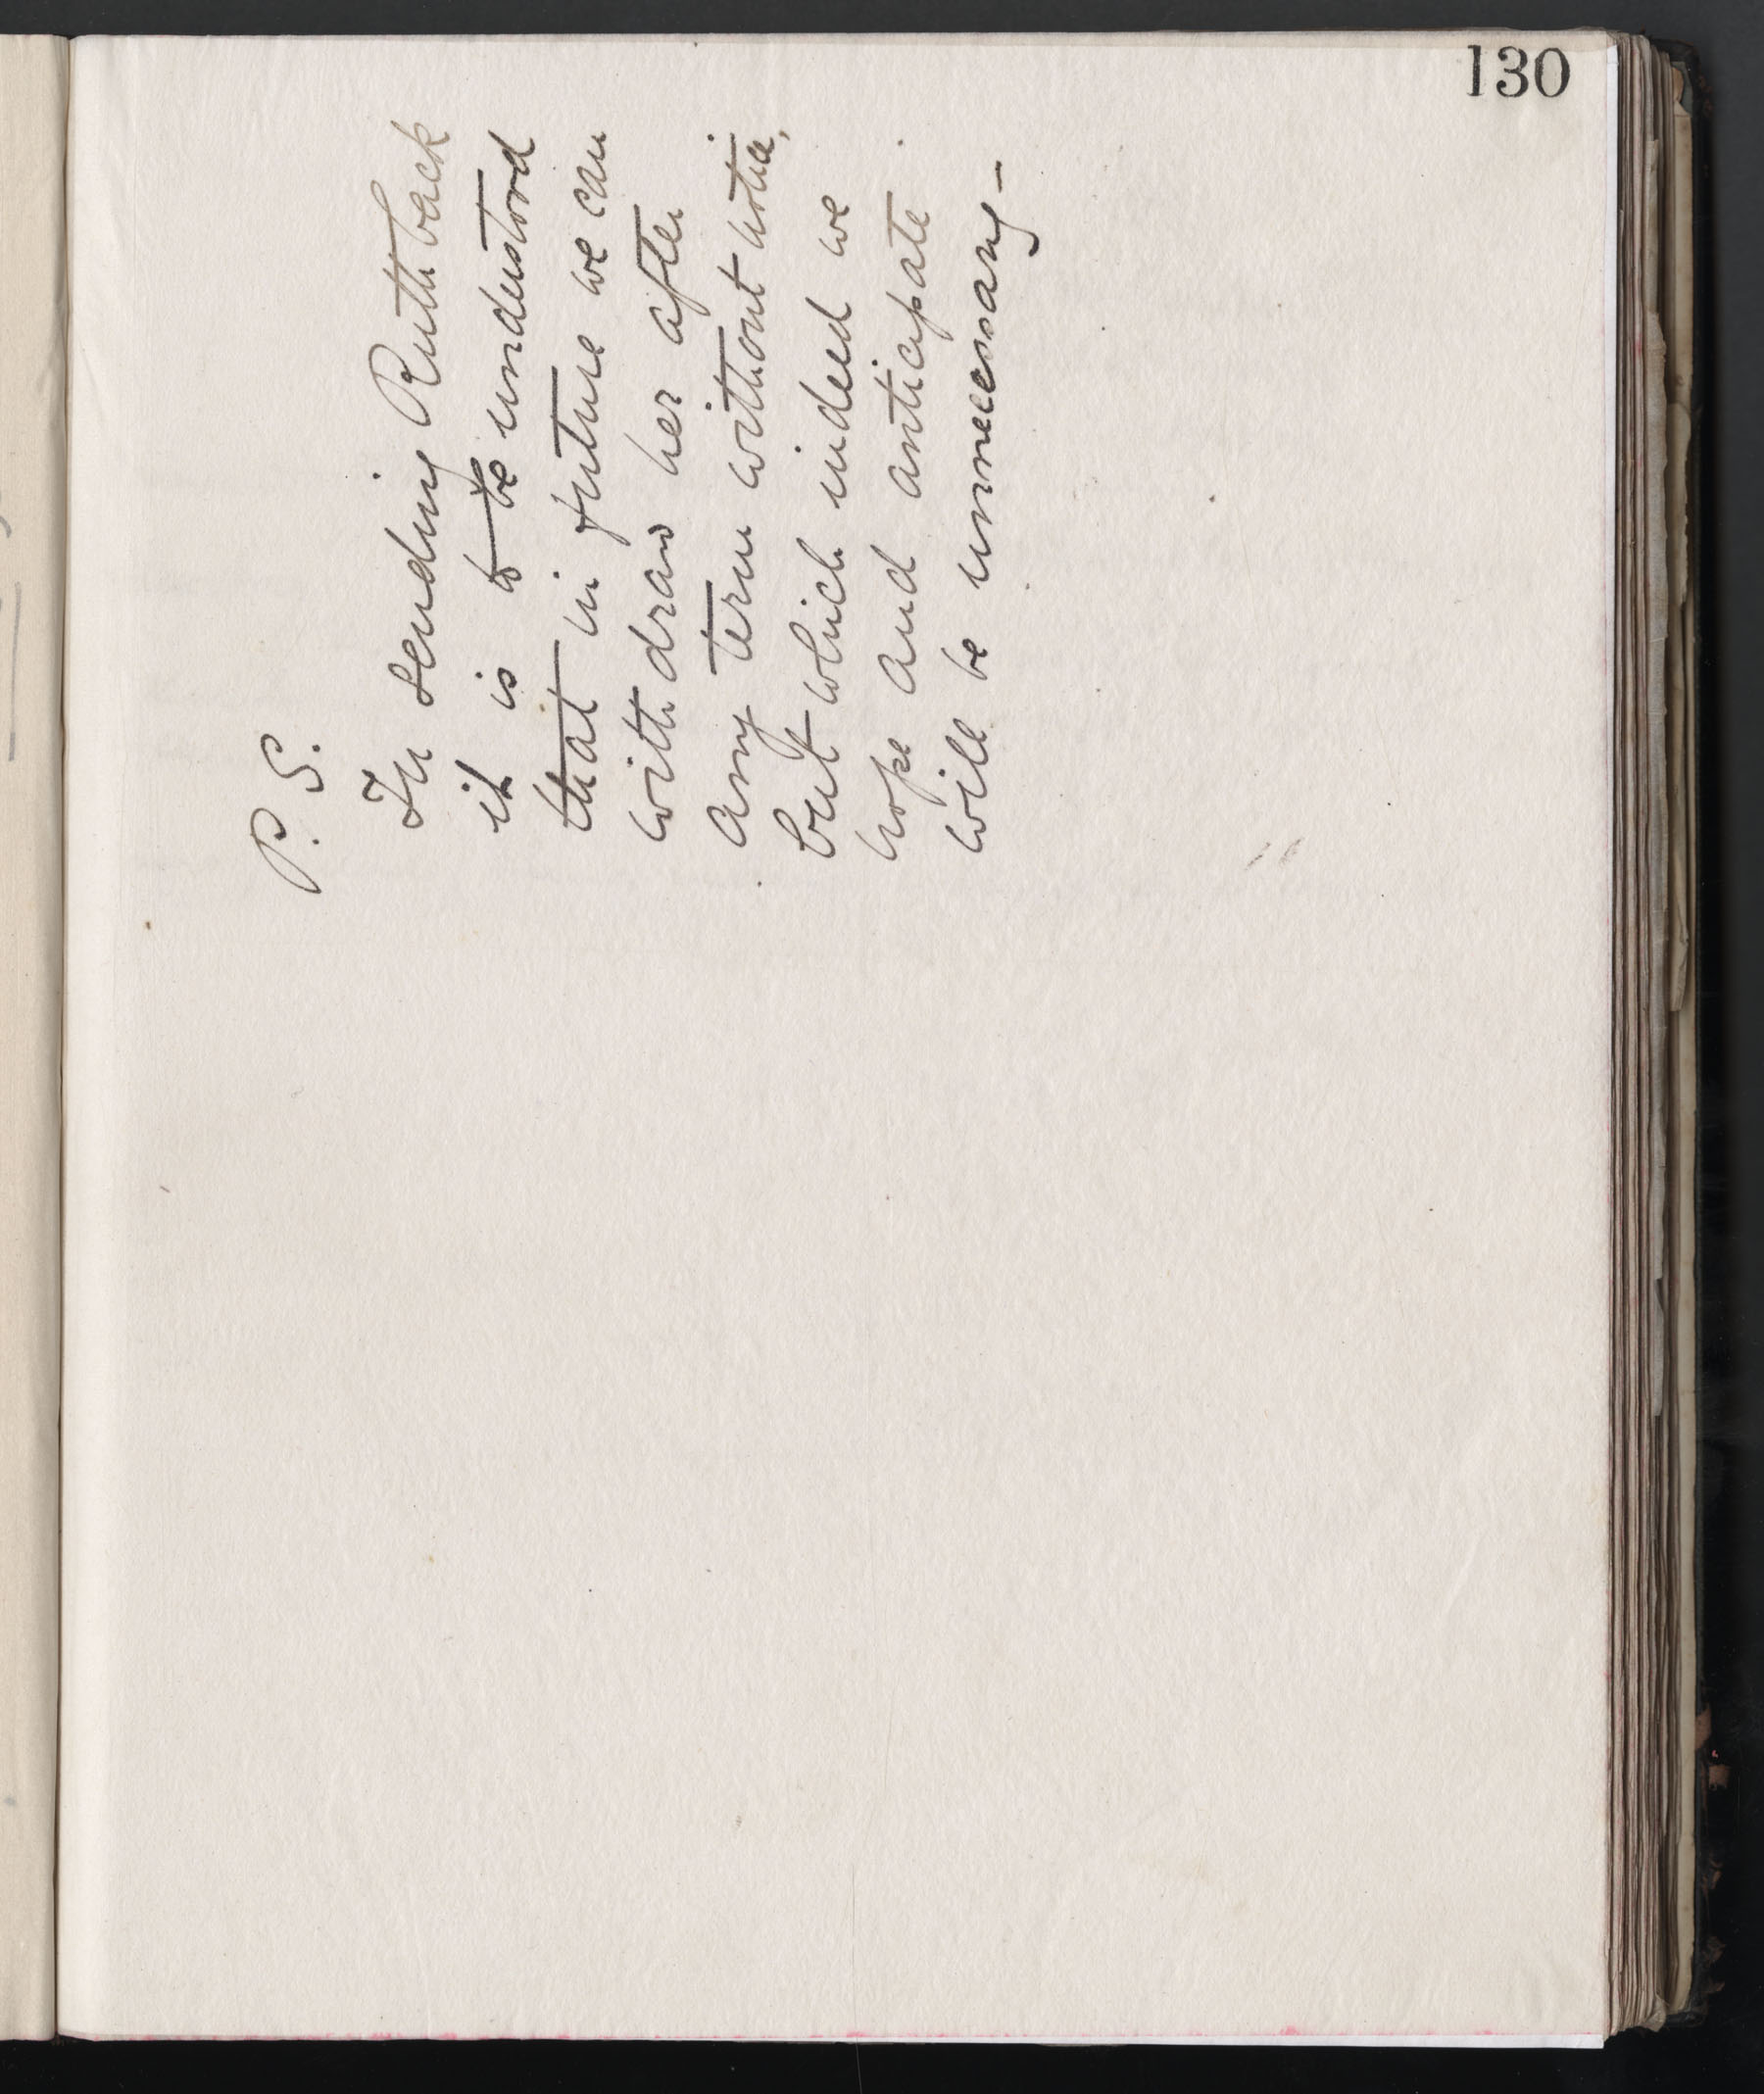 130
P. S.
In sending Ruth back
it is to be understood
that in future we can
withdraw her after
any term without notice,
but which indeed we
hope and anticipate
will be unnecessary –